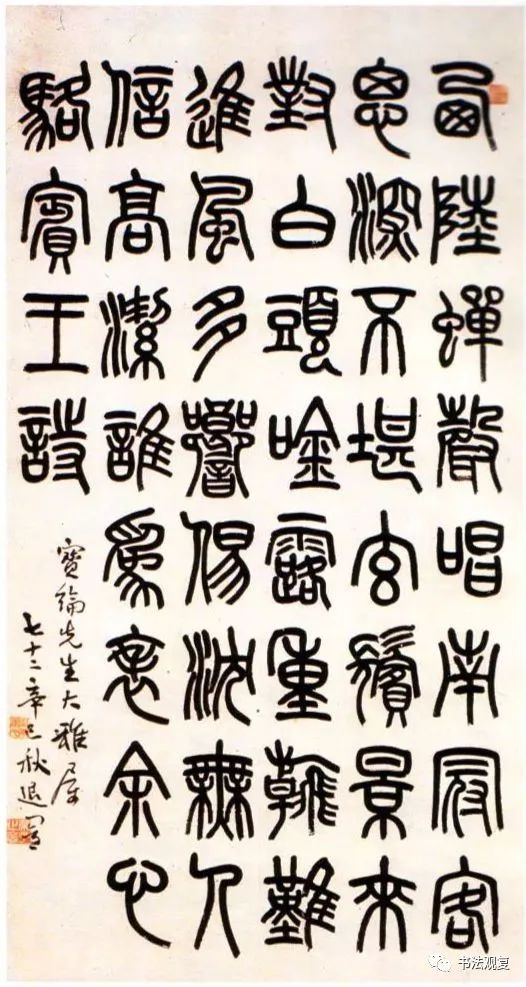 西陸蟬聲唱南冠客
思深不堪玄鬢景來
對白頭唫露重難
進風多響㑥沈無人
信高潔誰為表余心
駱賓王詩
寶綸先生大雅屬
七十二辛巳秋退闇
书法观复